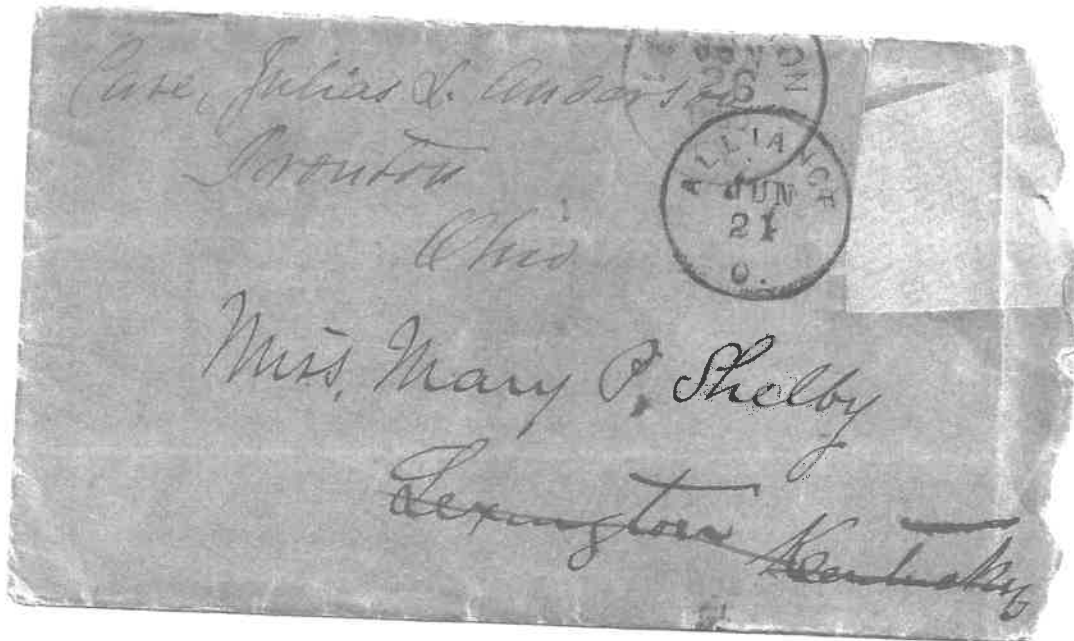 Care, Julias L. Anderson
Ironton
Ohio
26
ALLIANCE
JUN
21
O.
Miss. Mary P. Shelby
Lexington Kentucky